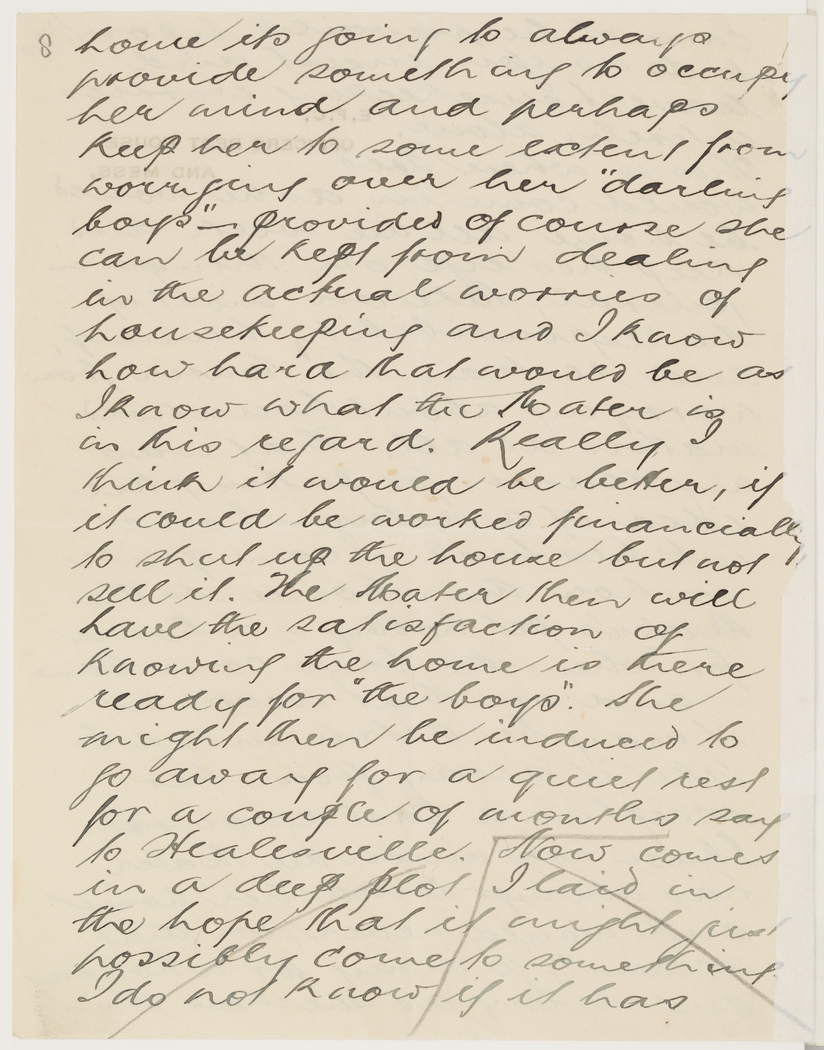 8 home its going to always
provide something to occupy
her mind and perhaps
keep her to some extent from
worrying over her "darling
boys" – provided of course she
can be kept from dealing
in the actual worries of
housekeeping and I know
how hard that would be as
I know what the Mater is
in this regard. Really I
think it would be better, if
it could be worked financially
to shut up the house but not
sell it. The Mater then will
have the satisfaction of
knowing the home is there
ready for "the boys". She
might then be induced to
go away for a quiet rest
for a couple of months say
to Healesville. Now comes
in a deep plot I laid in
the hope that it might just
possibly come to something.
I do not know if it has